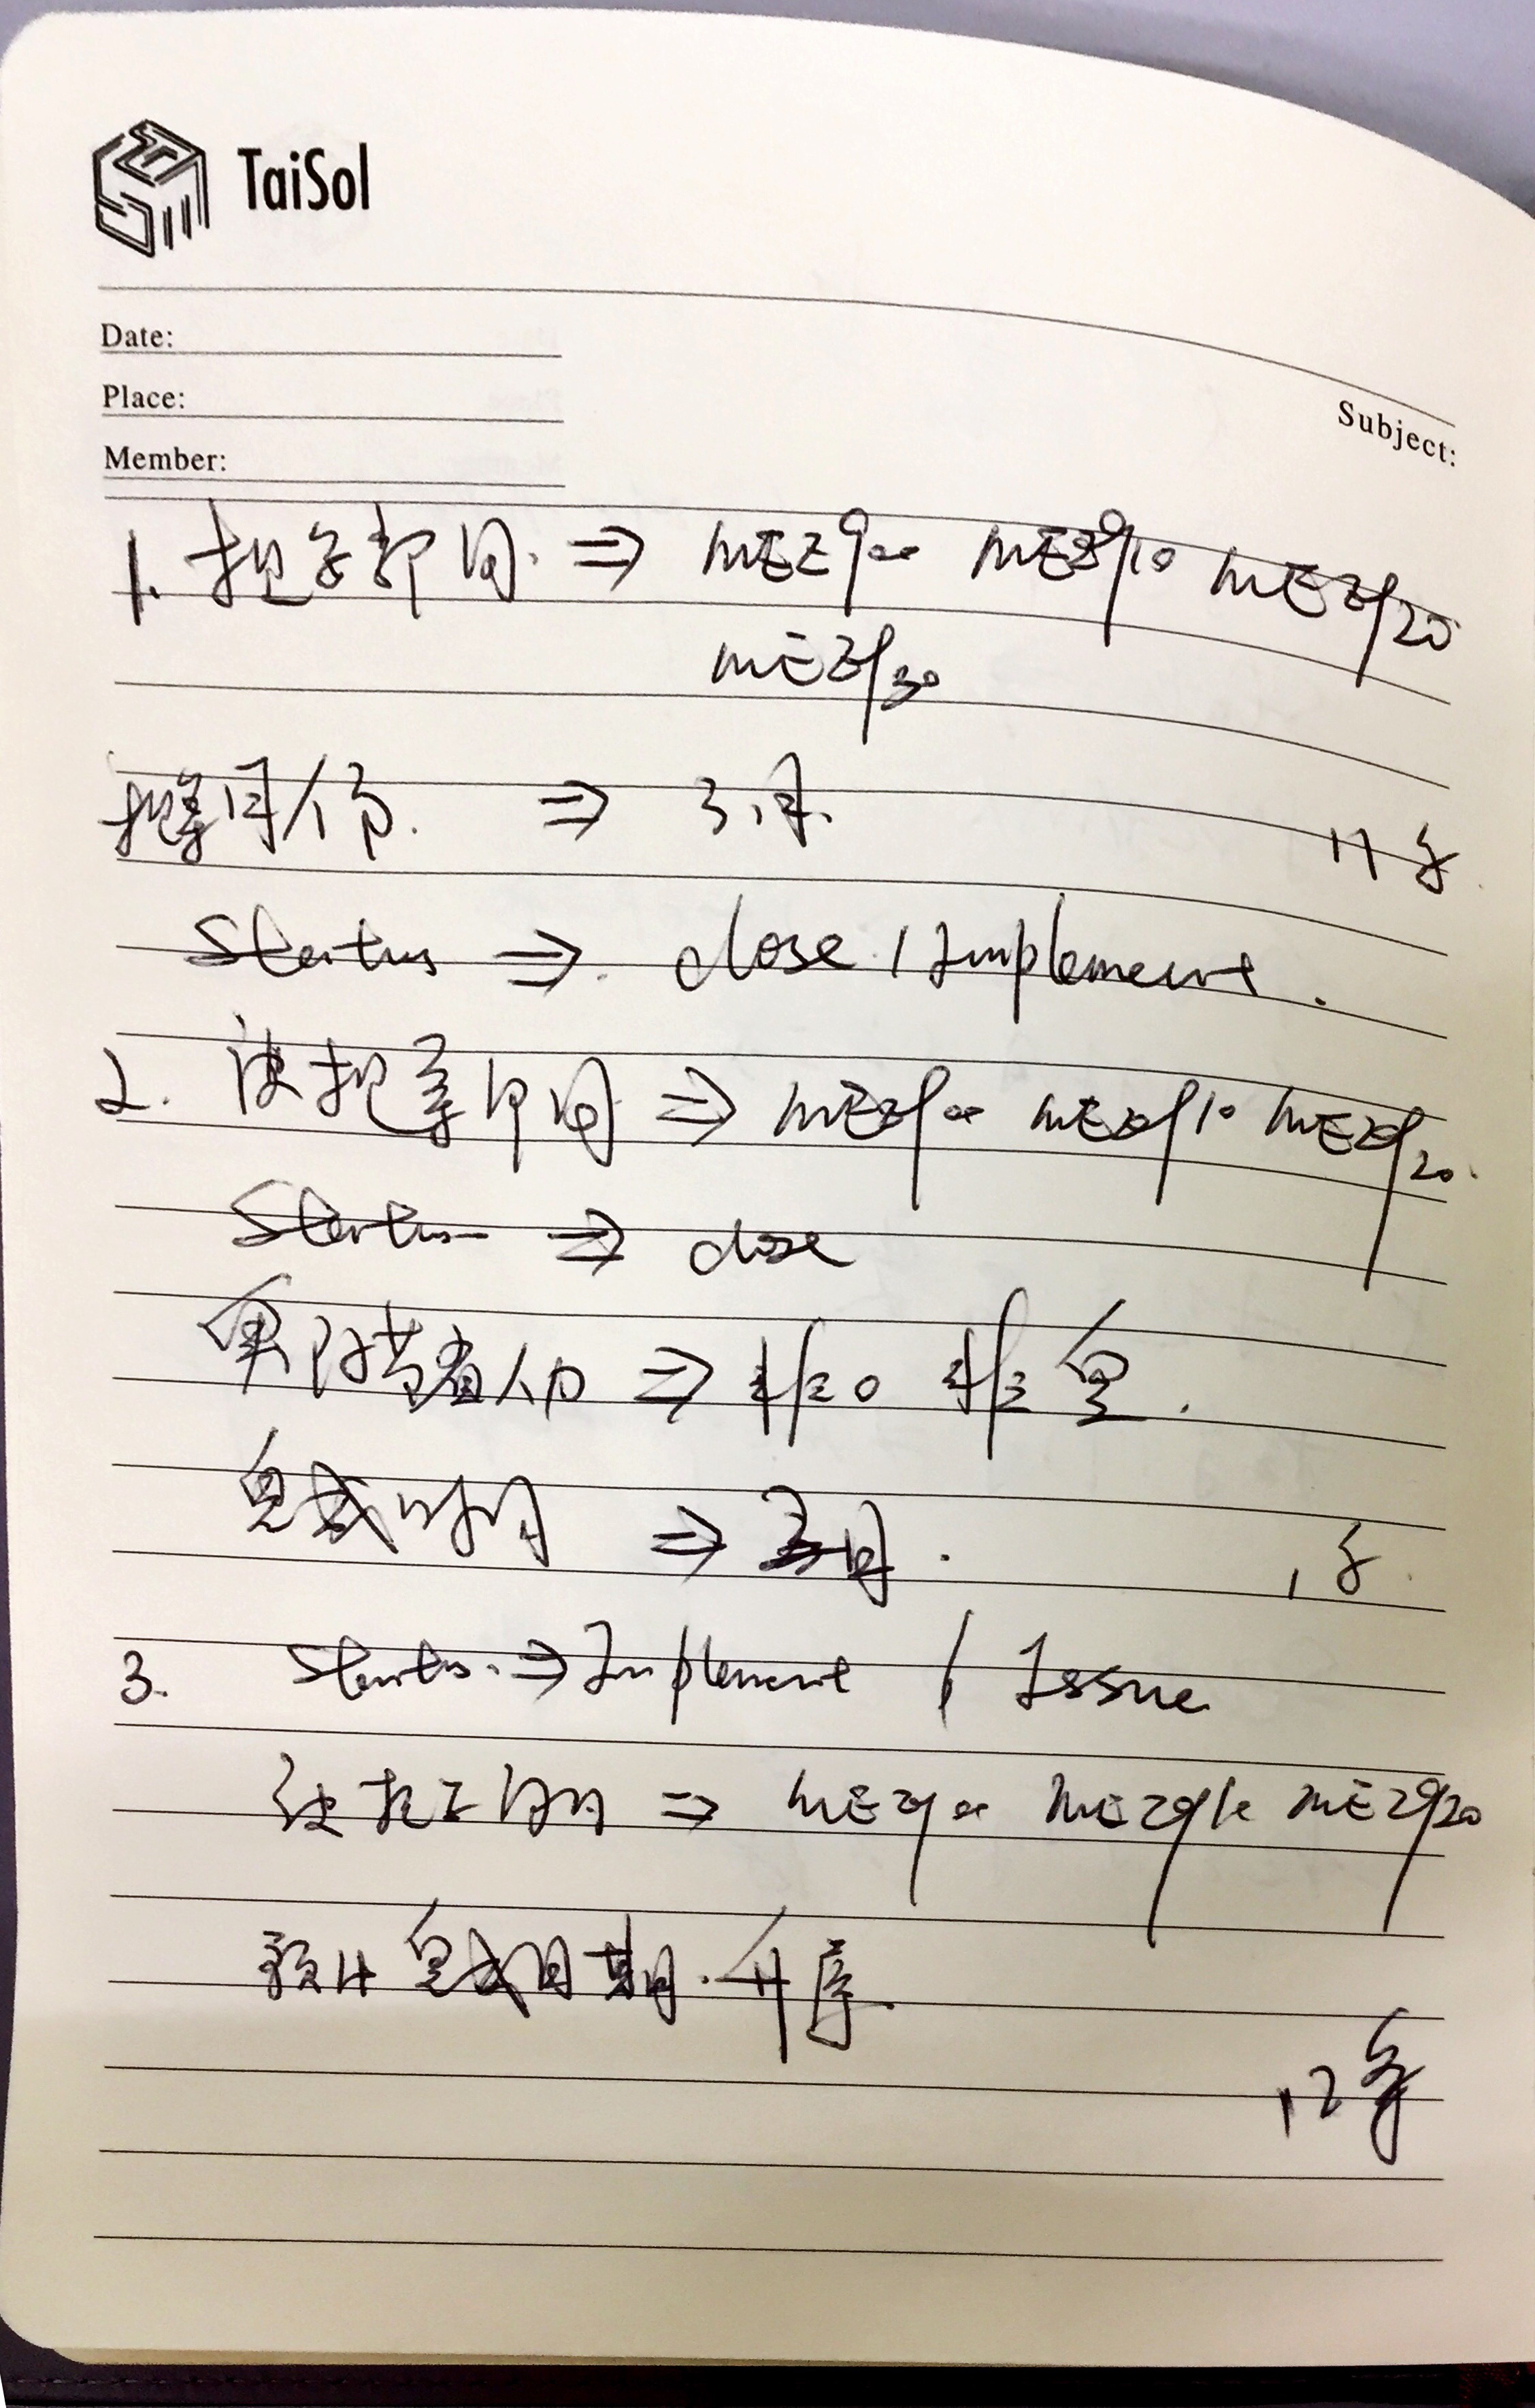 TaiSol
Date:
Place:
Member:
Subject:
1. 提案部门 ⇒ MEZ900 MEZ910 MEZ920
MEZ930
提案月份 ⇒ 3月
11条
Status ⇒ close / Implement.
2. 被提案部门 ⇒ MEZ900 MEZ910 MEZ920
Status ⇒ close
实际节省人力 ⇒ 非0 非空.
完成时间 ⇒ 3月.
1条
3. Status ⇒ Implement / Issue
被提案部门 ⇒ MEZ900 MEZ910 MEZ920
预计完成日期. 升序.
12条